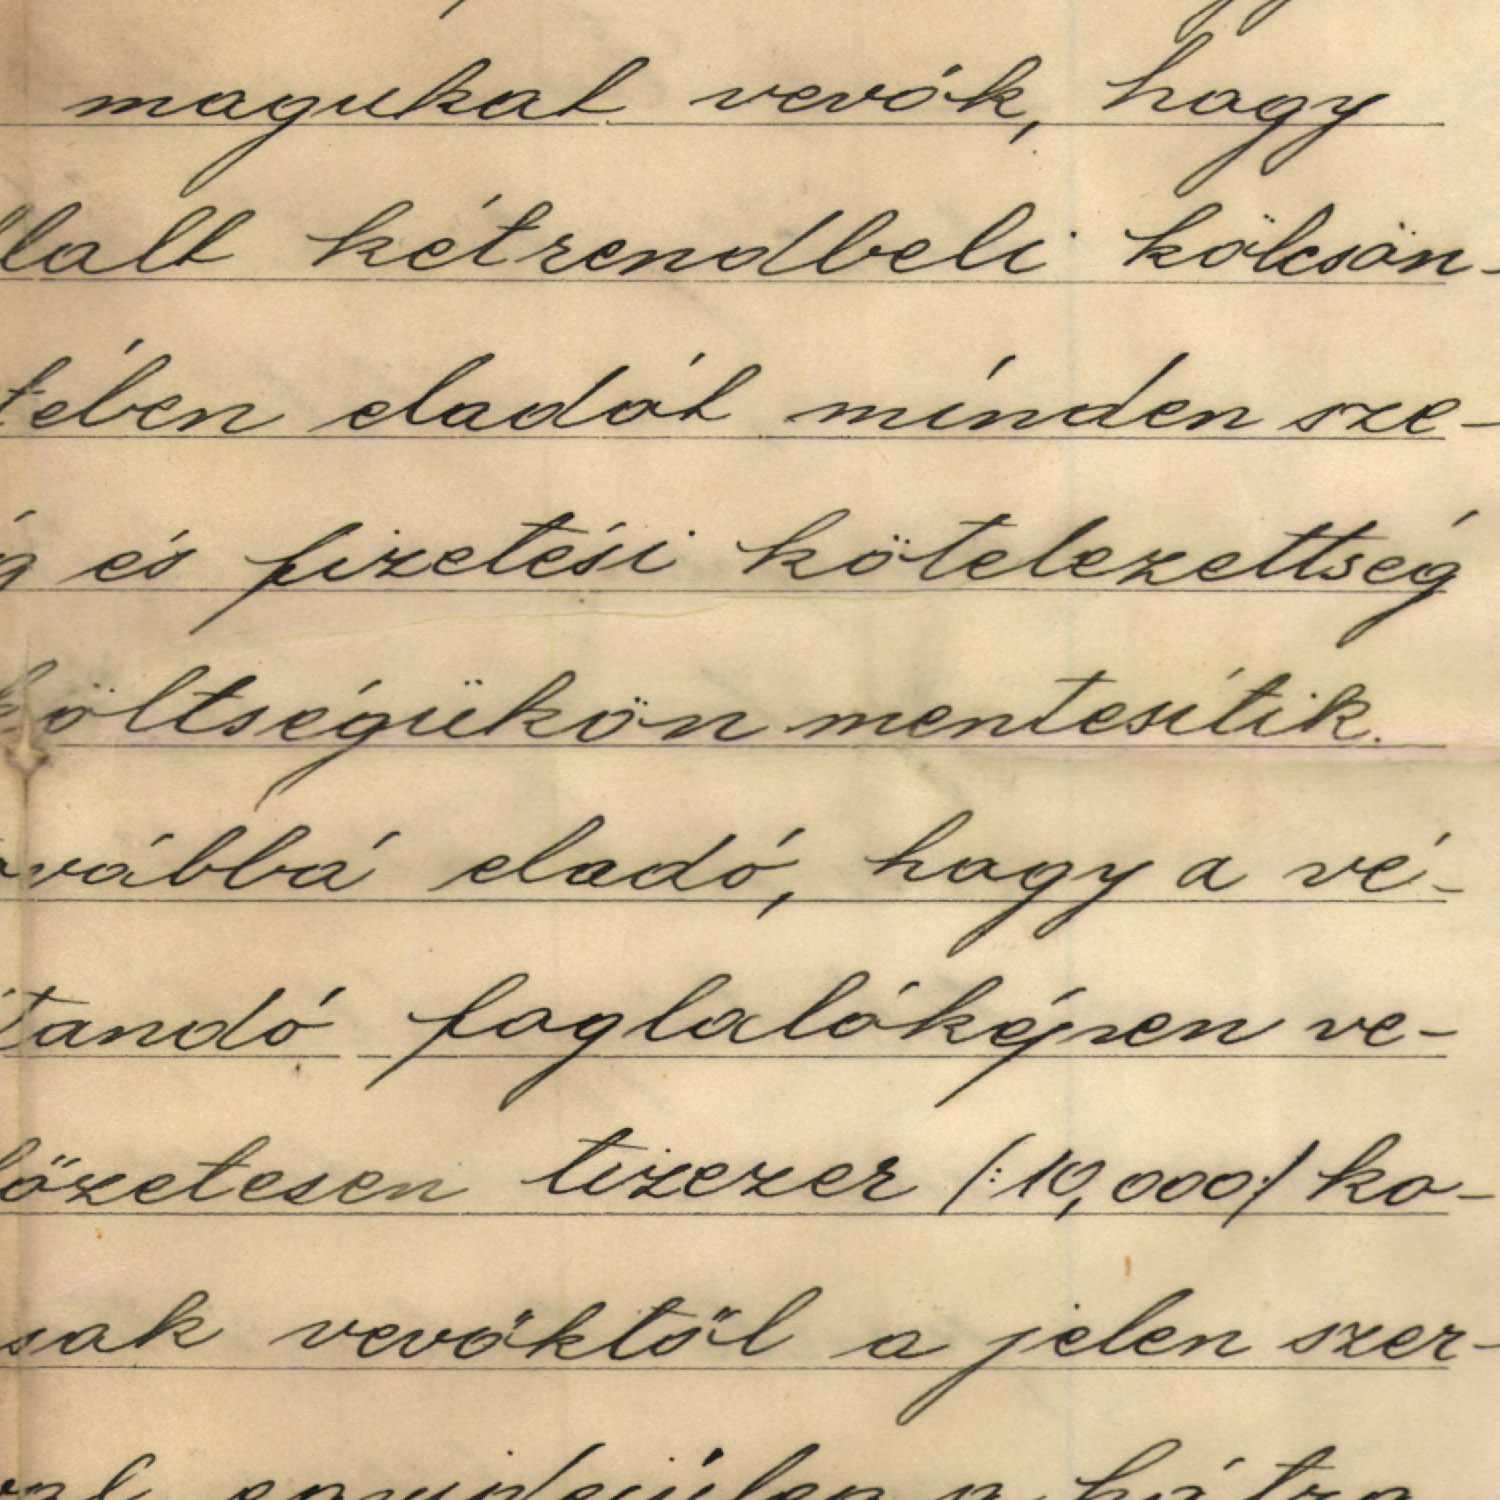 magukat vevők, hogy
lalt kétrendbeli kölcsön-
tében eladót minden sze-
g és fizetési kötelezettség
költségükön mentesítik.
ovábbá eladó, hogy a vé-
tandó foglalóképen ve-
lőzetesen tizezer (:10,000:) ko-
sak vevőktől a jelen szer-
egyidejűleg a hátra